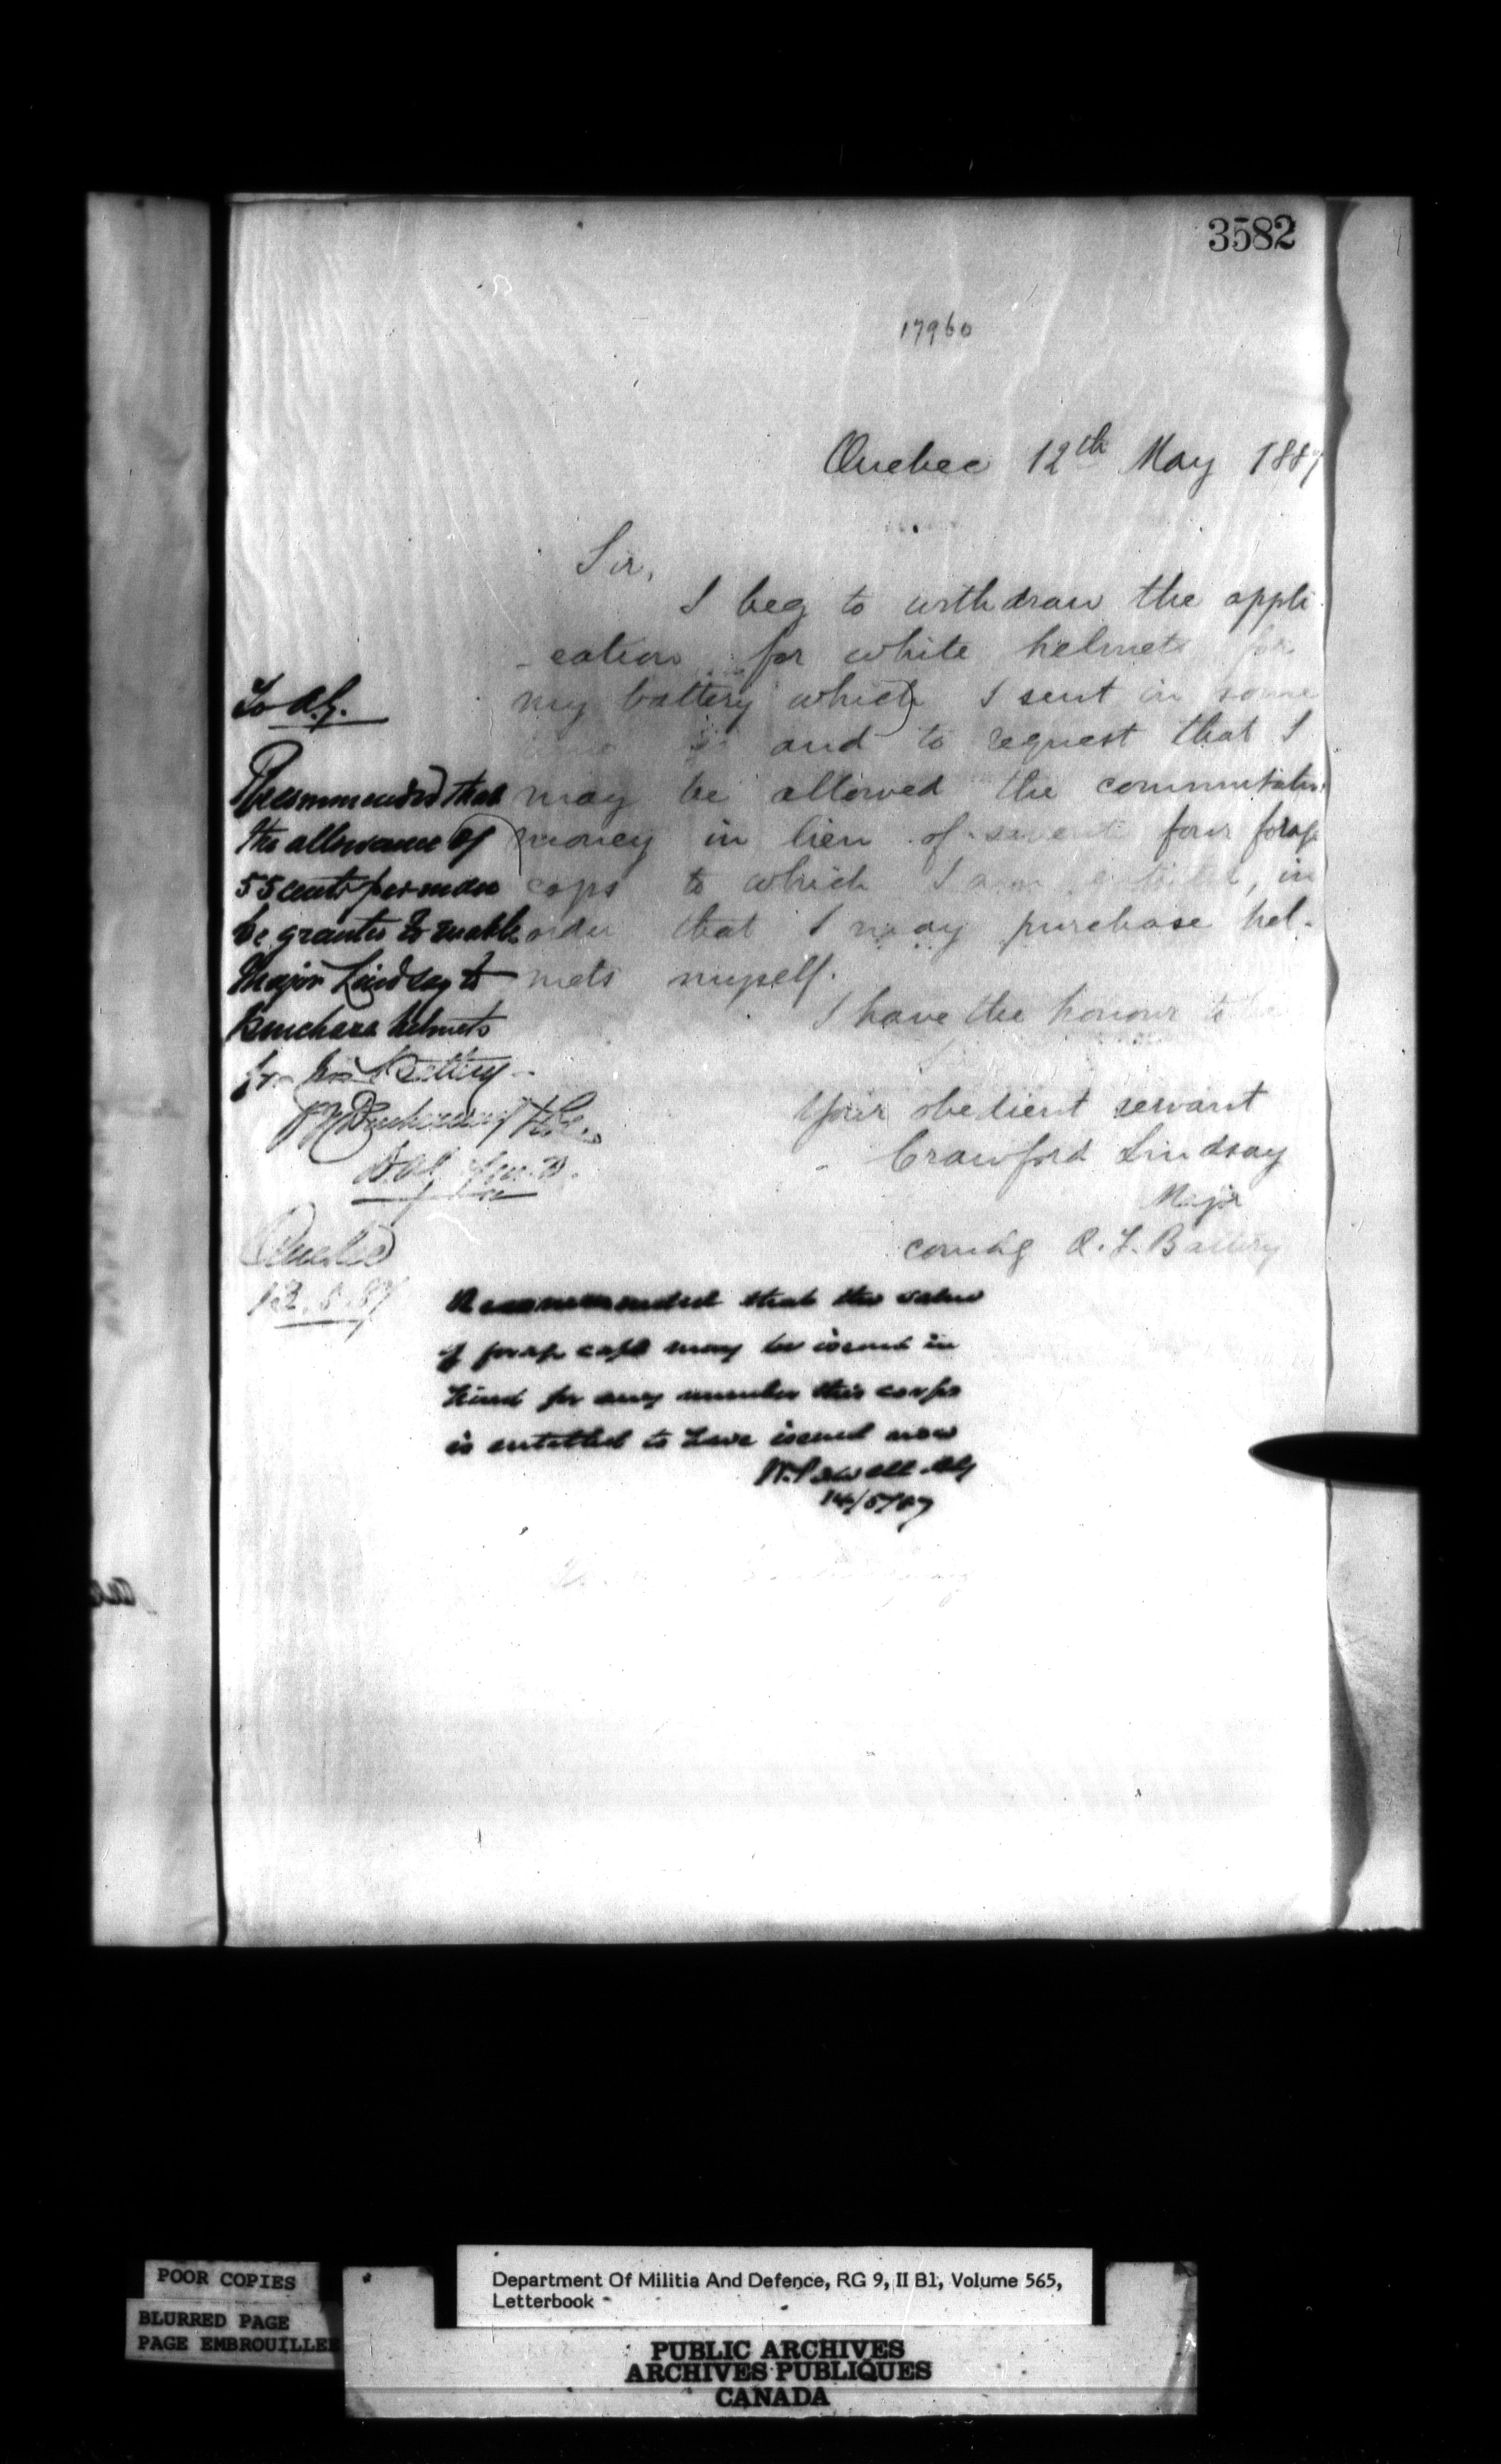 3582
17960
Quebec 12th May 1887
Sir,
I beg to withdraw the appli
-cation for white helmets for
my battery which I sent in some
and to request that I
may be allowed the commutation
money in lieu of seventy four forage
caps to which I am entitled, in
order that I may purchase hel-
mets myself.
I have the honour to be
Your obedient servant
Crawford Lindsay
Major
comdg Q. F. Battery
To A.G.
Recommended that
the allowance of
55 cents per man
be granted to enable
Major Lindsay to
purchase helmets
for his Battery
Quebec
13.5.87
Recommended that the value
of forage caps may be issued in
kind for any number this corps
is entitled to have issued now
W. Powell AG
14/5/87
POOR COPIES
BLURRED PAGE
PAGE EMBROUILLEE
Department Of Militia And Defence, RG 9, II B1, Volume 565,
Letterbook
PUBLIC ARCHIVES
ARCHIVES PUBLIQUES
CANADA